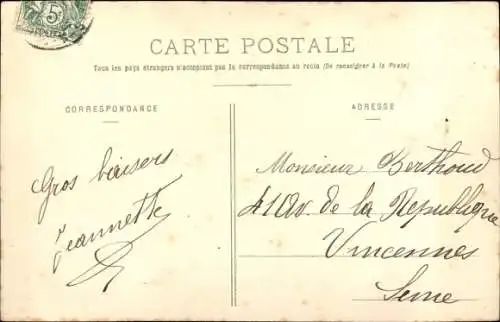 5
CARTE POSTALE
Tous les pays étrangers n'acceptent pas la correspondance au recto (Se renseigner à la Poste)
CORRESPONDANCE
Gros baisers
Jeannette
ADRESSE
Monsieur Berthoud
41 Av. de la République
Vincennes
Seine